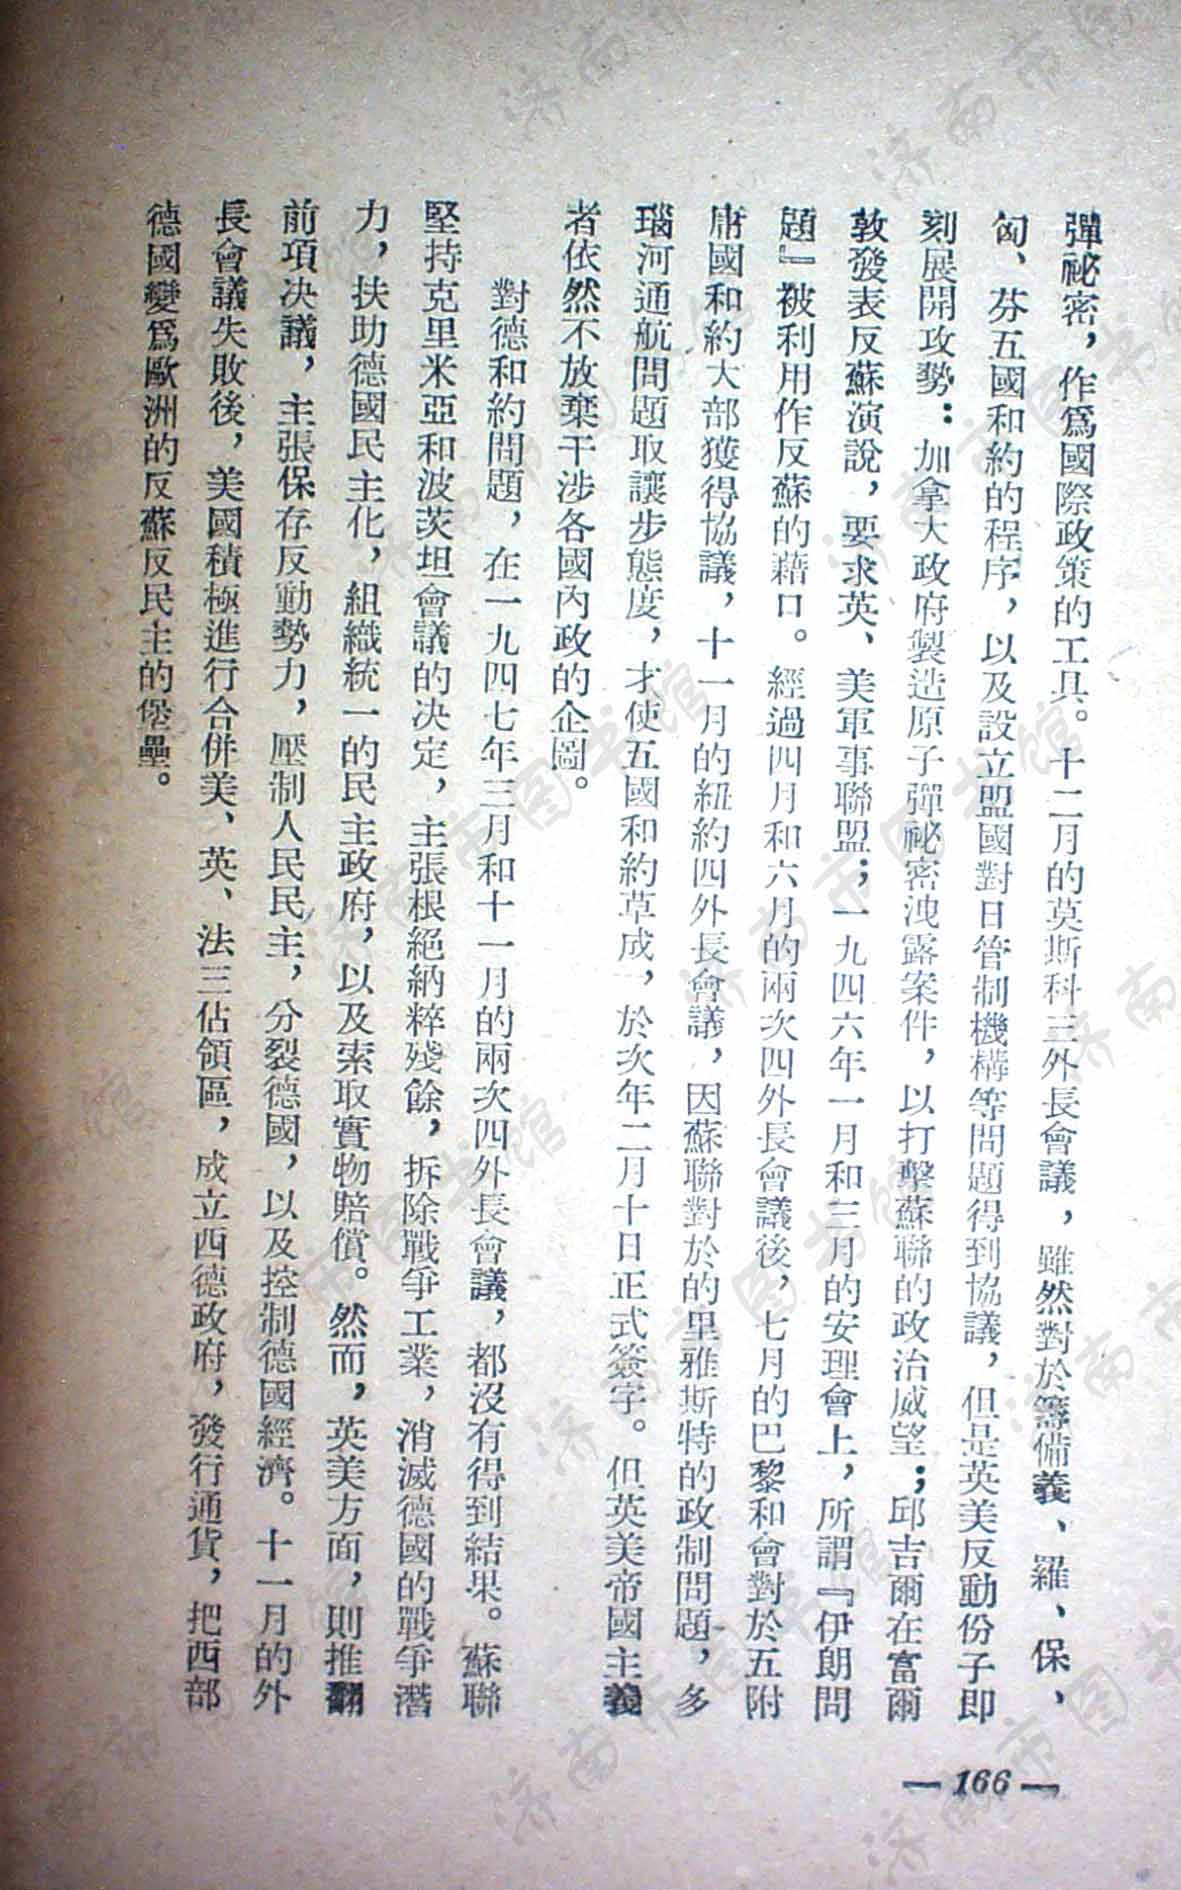 彈祕密，作爲國際政策的工具。十二月的莫斯科三外長會議，雖然對於籌備義、羅、保、
匈、芬五國和約的程序，以及設立盟國對日管制機構等問題得到協議，但是英美反動份子即
刻展開攻勢：加拿大政府製造原子彈祕密洩露案件，以打擊蘇聯的政治威望；邱吉爾在富爾
敦發表反蘇演說，要求英、美軍事聯盟；一九四六年一月和三月的安理會上，所謂『伊朗問
題』被利用作反蘇的藉口。經過四月和六月的兩次四外長會議後，七月的巴黎和會對於五附
庸國和約大部獲得協議，十一月的紐約四外長會議，因蘇聯對於的里雅斯特的政制問題，多
瑙河通航問題取讓步態度，才使五國和約草成，於次年二月十日正式簽字。但英美帝國主義
者依然不放棄干涉各國內政的企圖。
對德和約問題，在一九四七年三月和十一月的兩次四外長會議，都沒有得到結果。蘇聯
堅持克里米亞和波茨坦會議的决定，主張根絕納粹殘餘，拆除戰爭工業，消滅德國的戰爭潛
力，扶助德國民主化，組織統一的民主政府，以及索取實物賠償。然而，英美方面，則推翻
前項决議，主張保存反動勢力，壓制人民民主，分裂德國，以及控制德國經濟。十一月的外
長會議失敗後，美國積極進行合併美、英、法三佔領區，成立西德政府，發行通貨，把西部
德國變爲歐洲的反蘇反民主的堡壘。
— 166 —
济南市图书馆